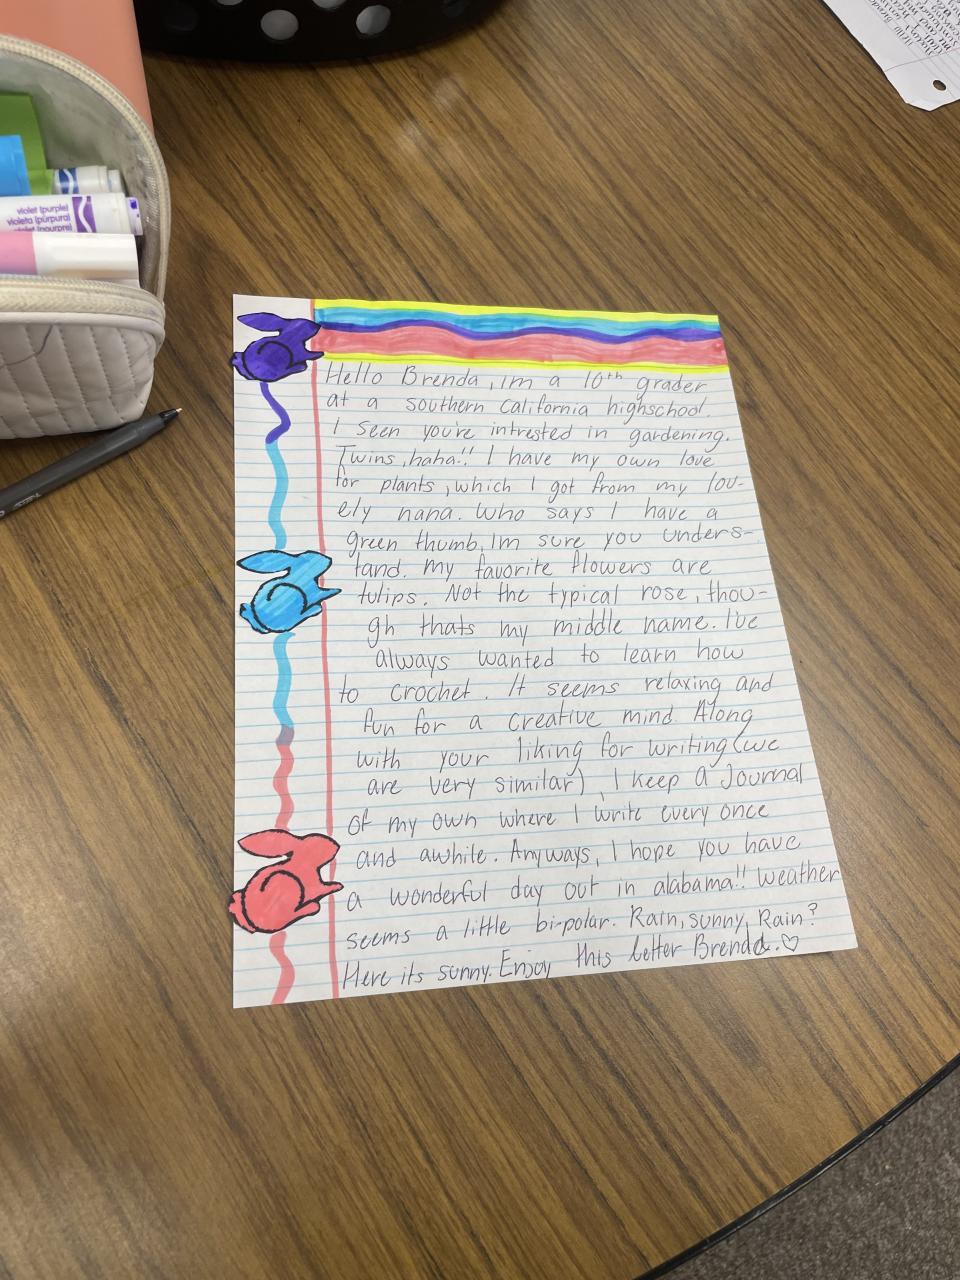 violet (purple)
violeta (púrpura)
violet (pourpre)
Hello Brenda, im a 10th grader
at a southern california highschool.
I seen you're intrested in gardening.
Twins, haha!! I have my own love
for plants, which I got from my lov-
ely nana. Who says I have a
green thumb, Im sure you unders-
tand. My favorite flowers are
tulips. Not the typical rose, thou-
gh thats my middle name. I've
always wanted to learn how
to crochet. It seems relaxing and
fun for a creative mind. Along
with your liking for writing (we
are very similar), I keep a Journal
of my own where I write every once
and awhile. Anyways, I hope you have
a wonderful day out in alabama!! Weather
seems a little bi-polar. Rain, sunny, Rain?
Here its sunny. Enjoy this letter Brenda. ♡